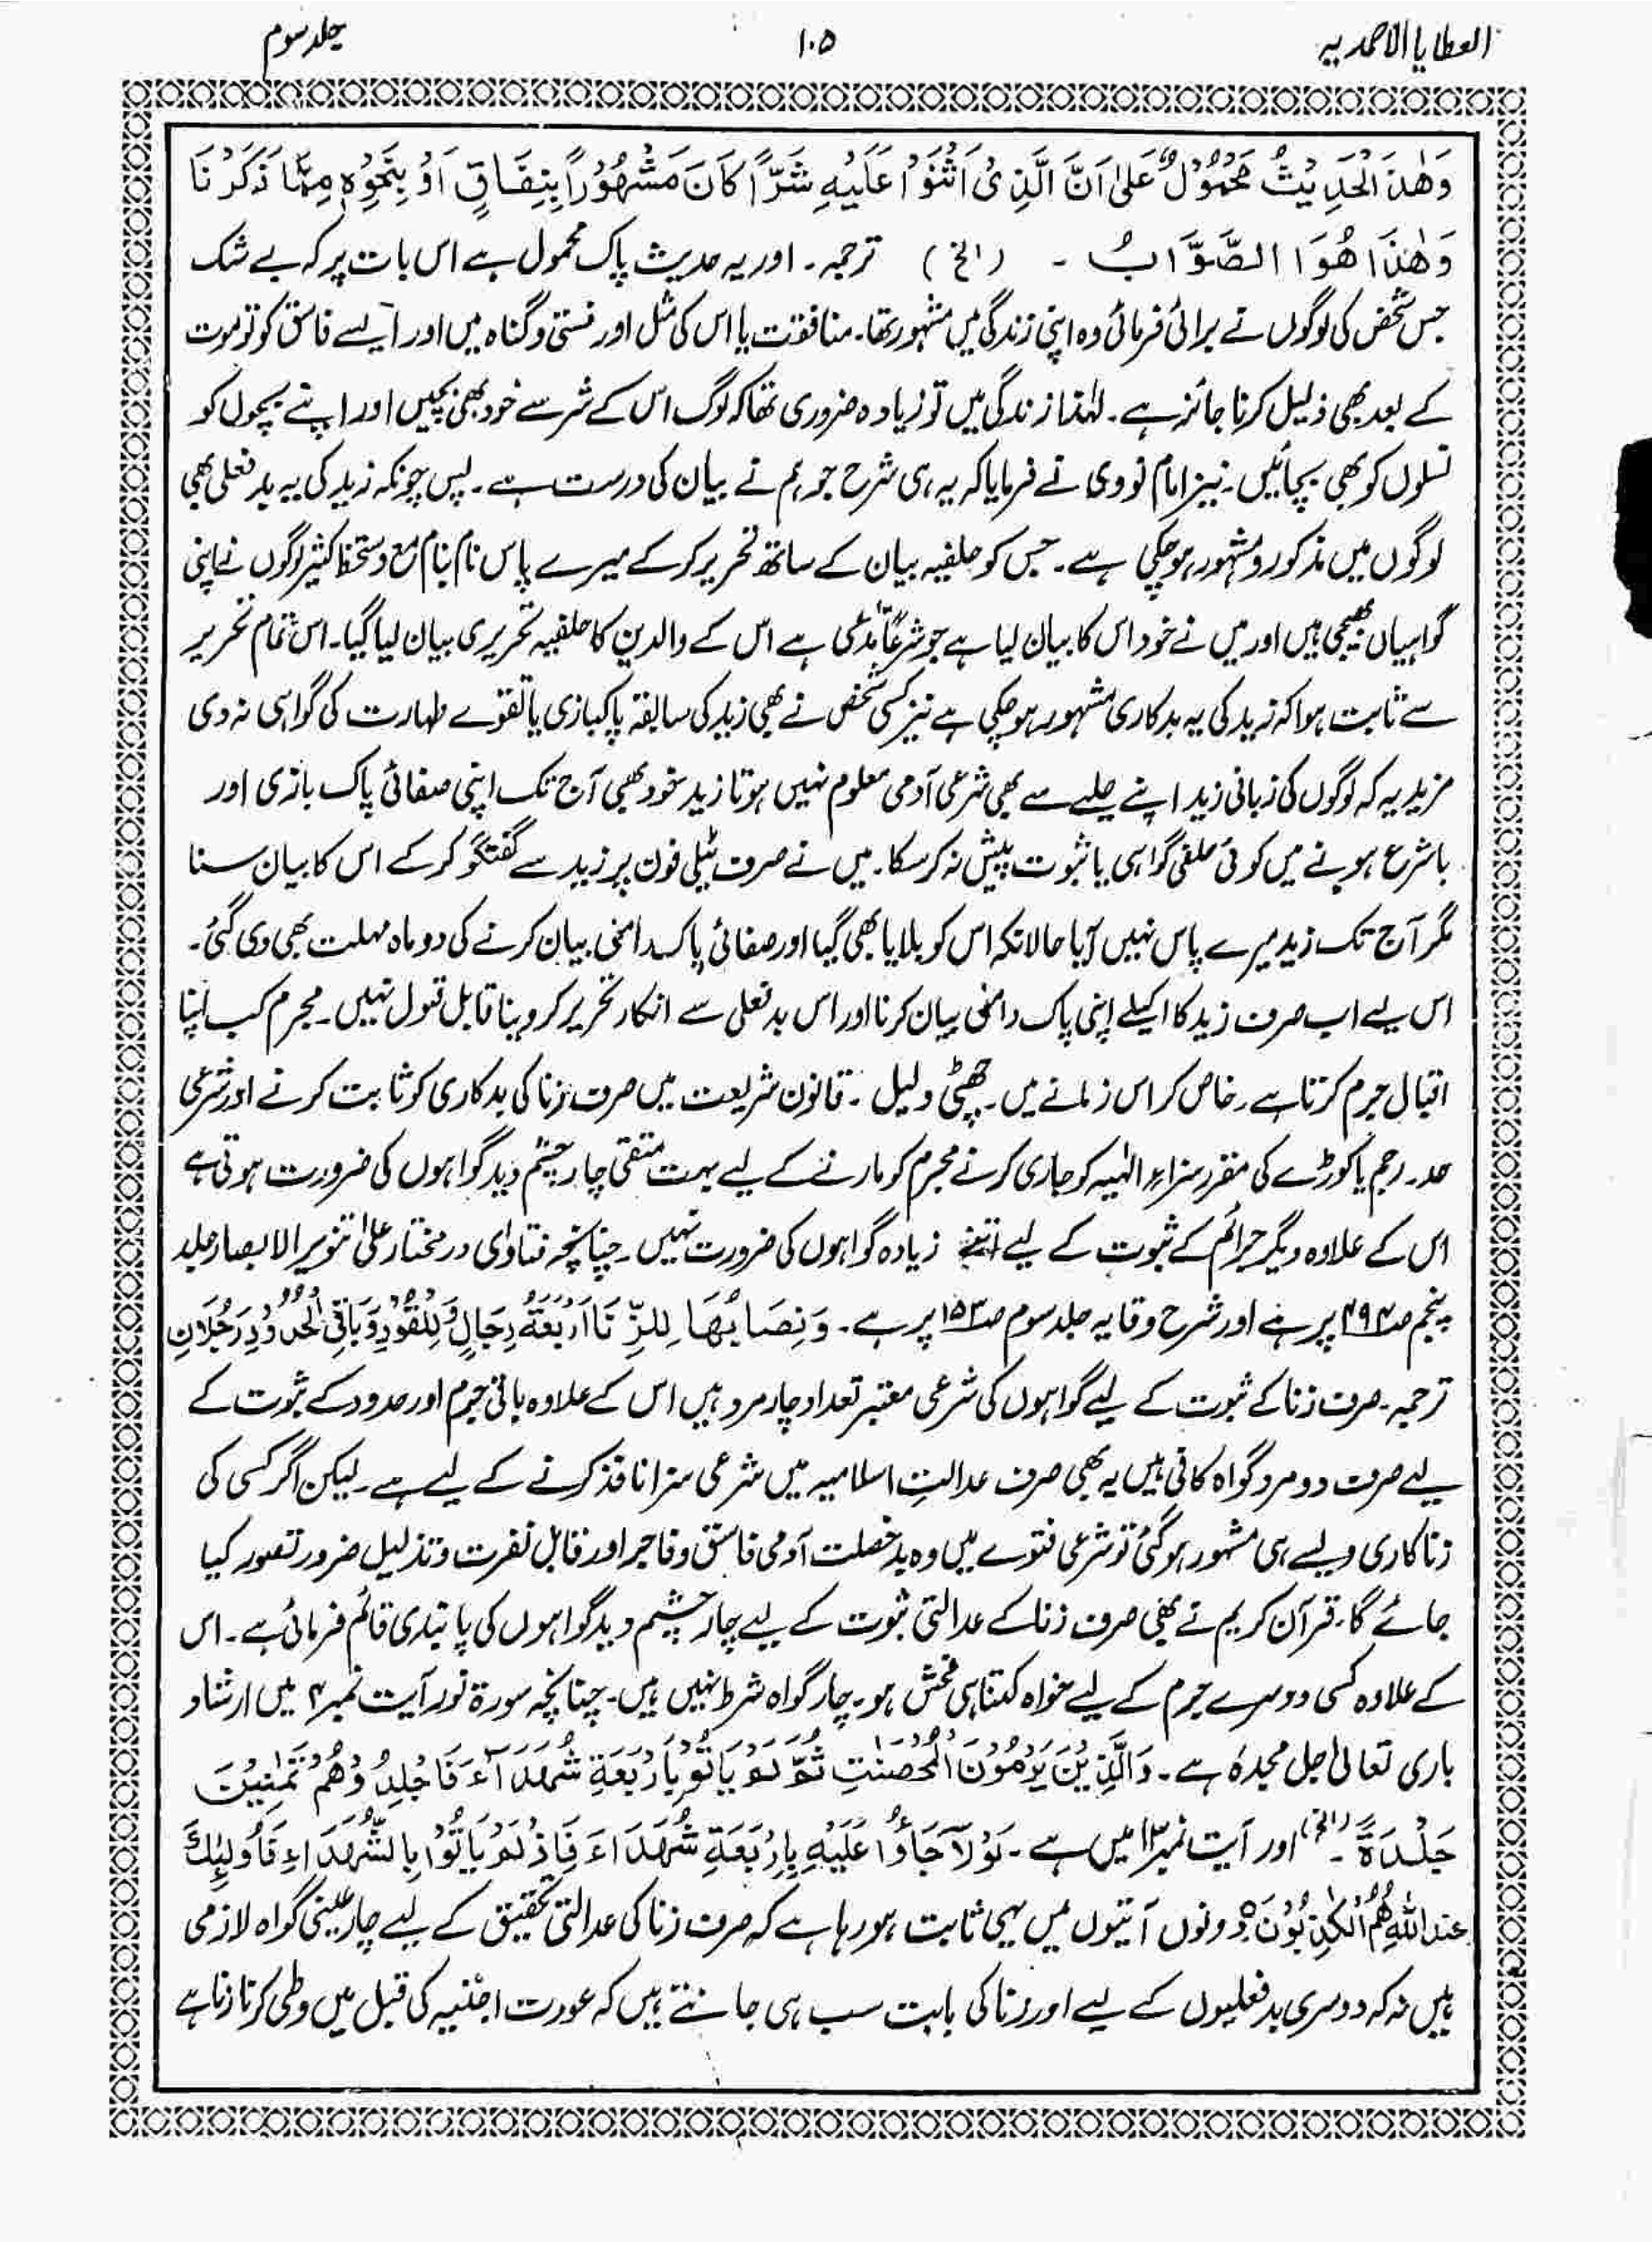 العطایا الاحمدیہ ۱۰۵ جلد سوم
وَھٰذَ الْحَدِیْثُ مَحْمُوْلٌ عَلیٰ اَنَّ الَّذِیْ اَثْنَوْا عَلَیْہِ شَرًّا کَانَ مَشْھُوْرًا بِنِفَاقٍ اَوْ بِنَحْوِہٖ مِمَّا ذَکَرْنَا
وَھٰذَا ھُوَا الصَّوَّابُ ۔ (الخ) ترجمہ۔ اور یہ حدیث پاک محمول ہے اس بات پر کہ بے شک
جس شخص کی لوگوں نے برائی فرمائی وہ اپنی زندگی میں مشہور تھا۔ منافقت یا اس کی مثل اور فسق و گناہ میں اور ایسے فاسق کو تو موت
کے بعد بھی ذلیل کرنا جائز ہے۔ لہٰذا زندگی میں تو زیادہ ضروری تھا کہ لوگ اس کے شر سے خود بھی بچیں اور اپنے بچوں کو
نسلوں کو بھی بچائیں۔ نیز امام نووی نے فرمایا کہ یہ ہی شرح جو ہم نے بیان کی درست ہے۔ پس چونکہ زید کی یہ بد فعلی بھی
لوگوں میں مذکور و مشہور ہو چکی ہے۔ جس کو حلفیہ بیان کے ساتھ تحریر کر کے میرے پاس نام بنام مع دستخط کثیر لوگوں نے اپنی
گواہیاں بھیجی ہیں اور میں نے خود اس کا بیان لیا ہے جو شرعًا مدعی ہے اس کے والدین کا حلفیہ تحریری بیان لیا گیا۔ اس تمام تحریر
سے ثابت ہوا کہ زید کی یہ بدکاری مشہور ہو چکی ہے نیز کسی شخص نے بھی زید کی سابقہ پاکبازی یا تقوے طہارت کی گواہی نہ دی
مزید یہ کہ لوگوں کی زبانی زید اپنے حلیے سے بھی شرعی آدمی معلوم نہیں ہوتا زید خود بھی آج تک اپنی صفائی پاک بازی اور
باشرع ہونے میں کوئی حلفی گواہی یا ثبوت پیش نہ کر سکا۔ میں نے صرف ٹیلی فون پر زید سے گفتگو کر کے اس کا بیان سنا
مگر آج تک زید میرے پاس نہیں آیا حالانکہ اس کو بلایا بھی گیا اور صفائی پاک دامنی بیان کرنے کی دو ماہ مہلت بھی دی گئی۔
اس لیے اب صرف زید کا اکیلے اپنی پاک دامنی بیان کرنا اور اس بد فعلی سے انکار تحریر کر دینا قابل قبول نہیں۔ مجرم کب اپنا
اقبالِ جرم کرتا ہے۔ خاص کر اس زمانے میں۔ چھٹی دلیل ۔ قانون شریعت میں صرف زنا کی بدکاری کو ثابت کرنے اور شرعی
حد۔ رجم یا کوڑے کی مقرر سزاءِ الٰہیہ کو جاری کرنے مجرم کو مارنے کے لیے بہت متقی چار چشم دید گواہوں کی ضرورت ہوتی ہے
اس کے علاوہ دیگر جرائم کے ثبوت کے لیے اتنے زیادہ گواہوں کی ضرورت نہیں۔ چنانچہ فتاوٰی در مختار علیٰ تنویر الابصار جلد
پنجم صـ۴۹۴ پر ہے اور شرح وقایہ جلد سوم صـ۱۵۳ پر ہے۔ وَنِصَابُھَا لِلزِّنَا اَرْبَعَۃُ رِجَالٍ وَلِلْقَوْدِ وَبَاقِی الْحُدُوْدِ رَجُلَانِ
ترجمہ۔ صرف زنا کے ثبوت کے لیے گواہوں کی شرعی معتبر تعداد چار مرد ہیں اس کے علاوہ باقی جرم اور حدود کے ثبوت کے
لیے صرف دو مرد گواہ کافی ہیں یہ بھی صرف عدالتِ اسلامیہ میں شرعی سزا نافذ کرنے کے لیے ہے۔ لیکن اگر کسی کی
زنا کاری ویسے ہی مشہور ہو گئی تو شرعی فتوے میں وہ بد خصلت آدمی فاسق و فاجر اور قابل نفرت و تذلیل ضرور تصور کیا
جائے گا۔ قرآن کریم نے بھی صرف زنا کے عدالتی ثبوت کے لیے چار چشم دید گواہوں کی پابندی قائم فرمائی ہے۔ اس
کے علاوہ کسی دوسرے جرم کے لیے خواہ کتنا ہی فحش ہو۔ چار گواہ شرط نہیں ہیں۔ چنانچہ سورۃ نور آیت نمبر ۴ میں ارشاد
باری تعالیٰ جل مجدہٗ ہے۔ وَالَّذِیْنَ یَرْمُوْنَ الْمُحْصَنٰتِ ثُمَّ لَمْ یَاتُوْ بِاَرْبَعَۃِ شُھَدَآءَ فَاجْلِدُوْھُمْ ثَمٰنِیْنَ
جَلْدَۃً۔ (الخ) اور آیت نمبر ۱۳ میں ہے۔ لَوْلَآ جَاؤُا عَلَیْہِ بِاَرْبَعَۃِ شُھَدَاءَ فَاِذْ لَمْ یَاتُوْا بِالشُّھَدَاءِ فَاُولٰئِکَ
عِنْدَ اللّٰہِ ھُمُ الْکٰذِبُوْنَ ہ دونوں آیتوں میں یہی ثابت ہو رہا ہے کہ صرف زنا کی عدالتی تحقیق کے لیے چار عینی گواہ لازمی
ہیں نہ کہ دوسری بدفعلیوں کے لیے اور زنا کی بابت سب ہی جانتے ہیں کہ عورت اجنبیہ کی قبل میں وطی کرنا زنا ہے